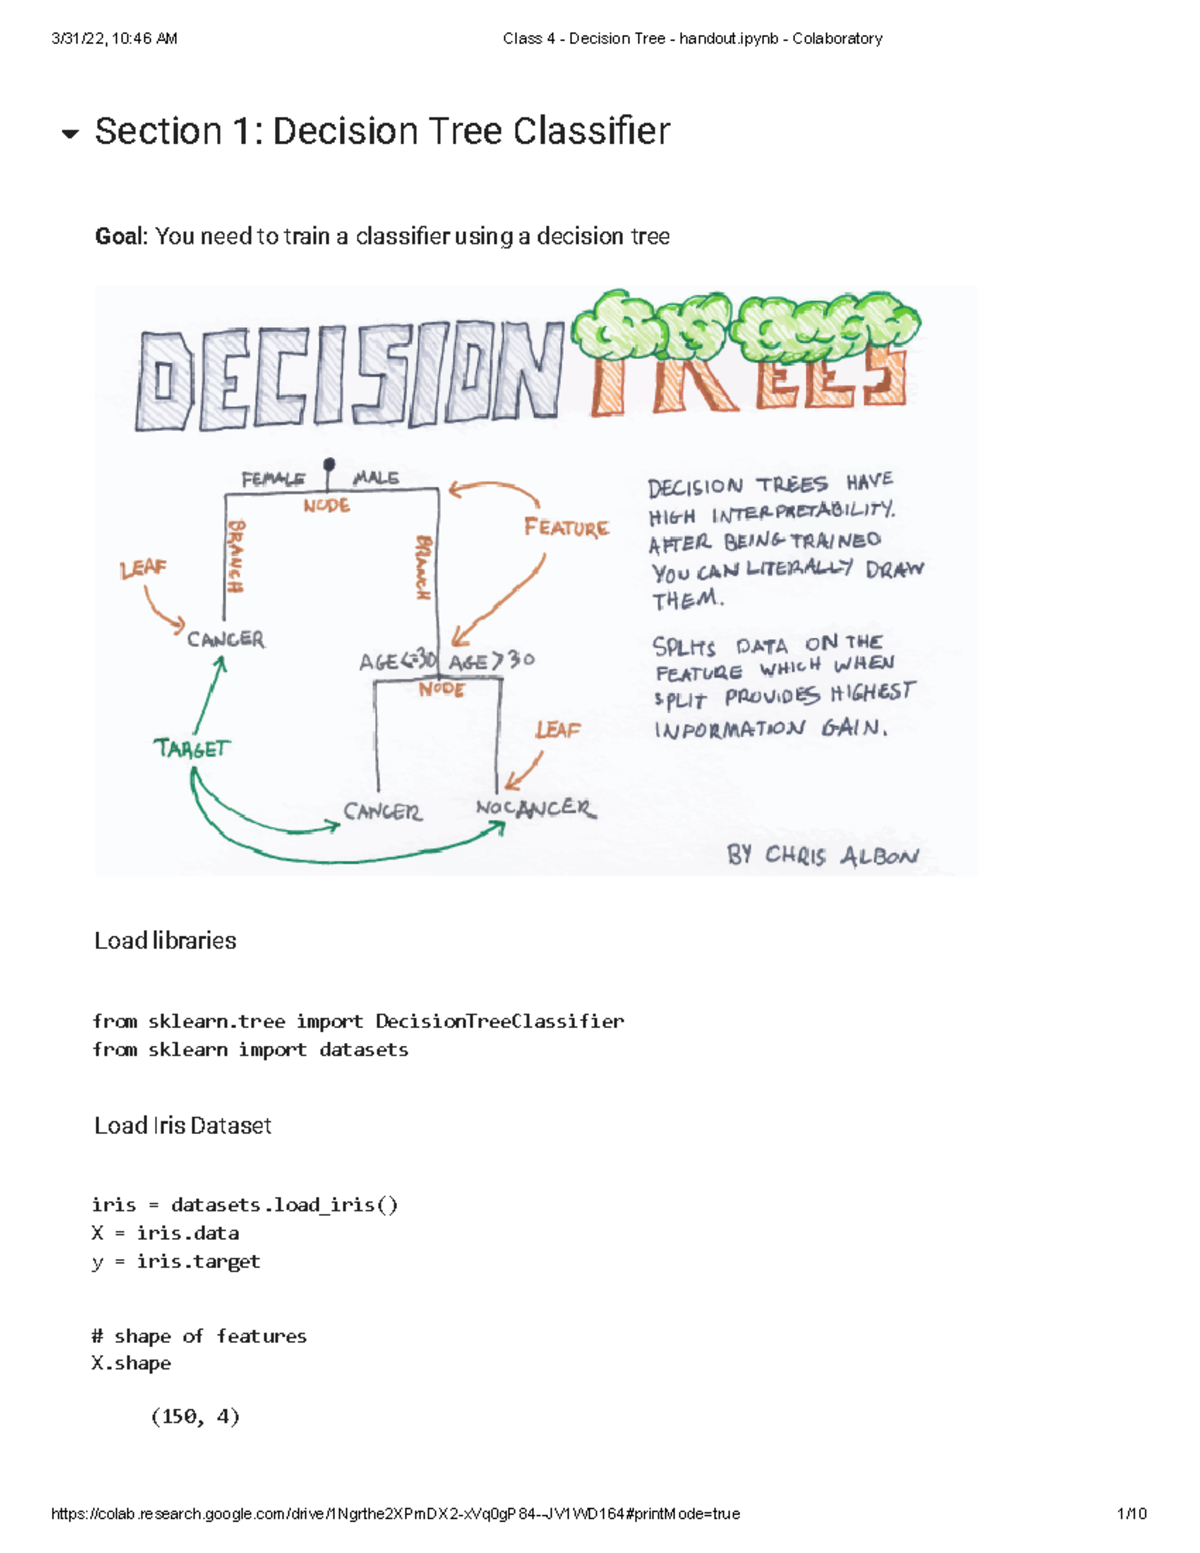 3/31/22, 10:46 AM
Class 4 - Decision Tree - handout.ipynb - Colaboratory
Section 1: Decision Tree Classifier
Goal: You need to train a classifier using a decision tree
DECISION TREES
FEMALE MALE
NODE
BRANCH
BRANCH
FEATURE
LEAF
CANCER
AGE<=30 AGE>30
NODE
LEAF
TARGET
CANCER
NO CANCER
DECISION TREES HAVE
HIGH INTERPRETABILITY.
AFTER BEING TRAINED
YOU CAN LITERALLY DRAW
THEM.
SPLITS DATA ON THE
FEATURE WHICH WHEN
SPLIT PROVIDES HIGHEST
INFORMATION GAIN.
BY CHRIS ALBON
Load libraries
from sklearn.tree import DecisionTreeClassifier
from sklearn import datasets
Load Iris Dataset
iris = datasets.load_iris()
X = iris.data
y = iris.target
# shape of features
X.shape
(150, 4)
https://colab.research.google.com/drive/1Ngrthe2XPmDX2-xVq0gP84--JV1WD164#printMode=true
1/10